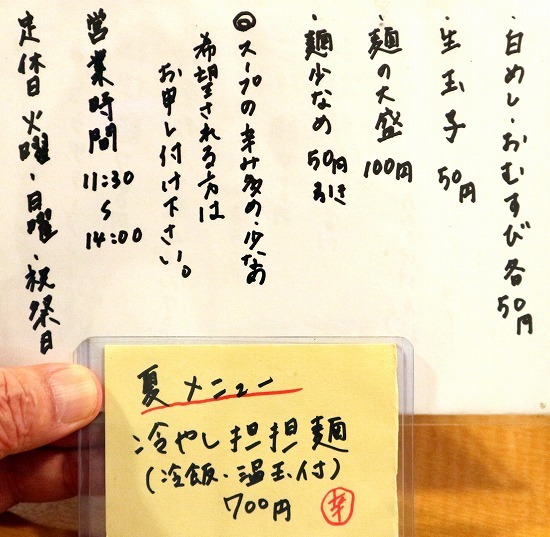 ・白めし・おむすび各50円
・生玉子 50円
・麺の大盛 100円
・麺少なめ 50円引き
◎スープの辛み多め・少なめ
希望される方は
お申し付け下さい。
営業時間 11:30〜14:00
定休日 火曜・日曜・祝祭日
夏メニュー
冷やし担担麺
(冷飯・温玉付)
700円 辛